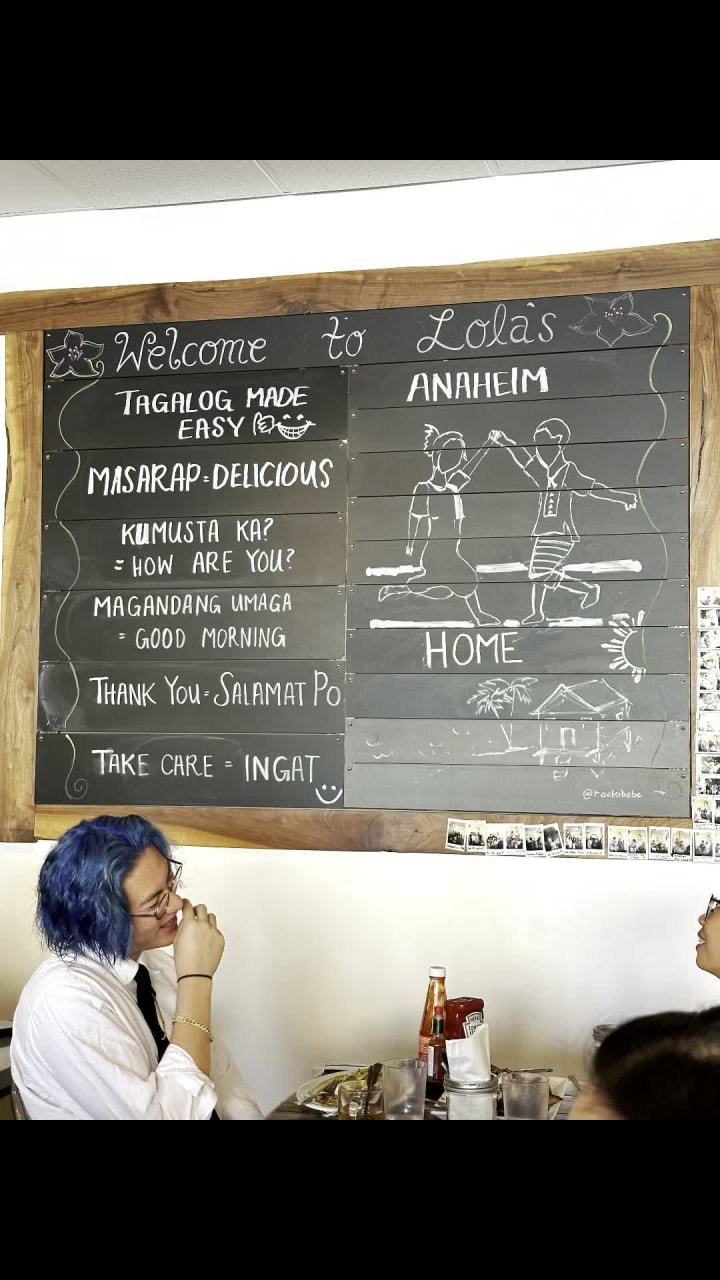 Welcome to Lola's
TAGALOG MADE
EASY
MASARAP=DELICIOUS
KUMUSTA KA?
= HOW ARE YOU?
MAGANDANG UMAGA
= GOOD MORNING
THANK YOU=SALAMAT PO
TAKE CARE = INGAT
ANAHEIM
HOME
@rockibebe
HEINZ